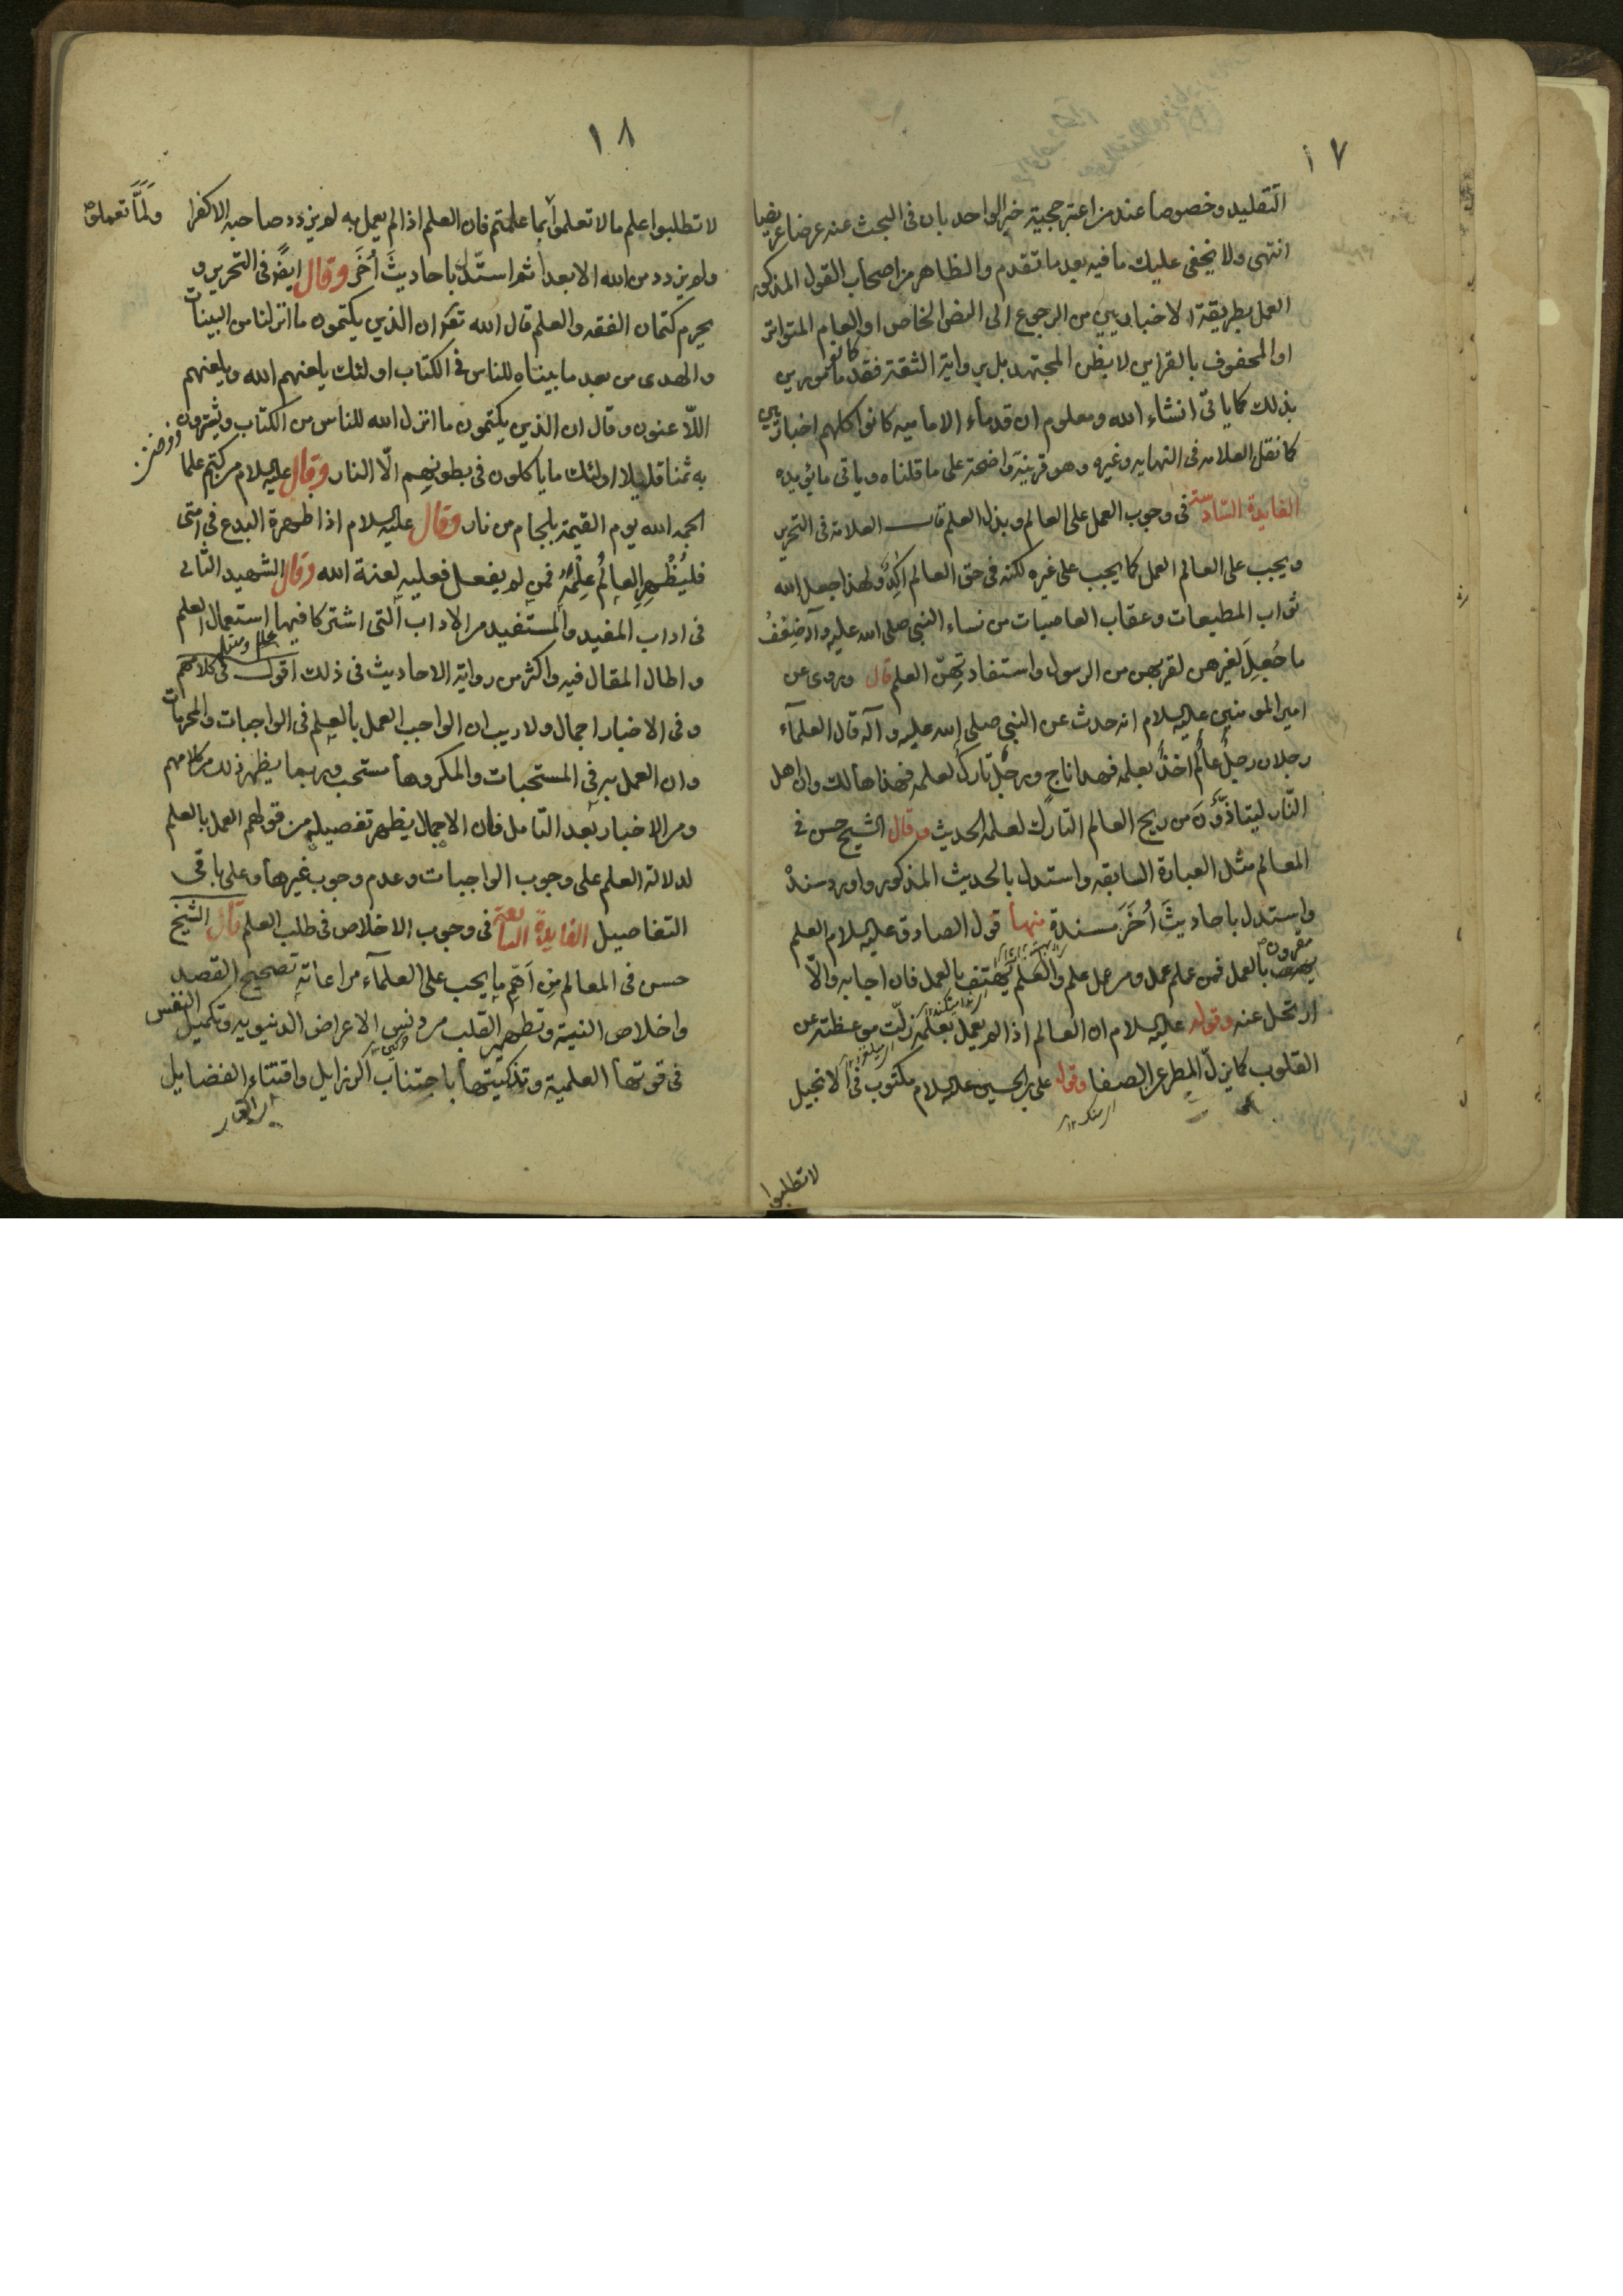 ١٧
التقليد وخصوصا عند من اعتبر حجية خبر الواحد بان في البحث عنه عرضا عريضا
انتهى ولا يخفى عليك ما فيه بعد ما تقدم والظاهر من اصحاب القول المذكور
العمل بطريقة الاخباريين من الرجوع الى النص الخاص او العام المتواتر
او المحفوف بالقراين لا بظن المجتهد بل برواية الثقة فقد كانوا مامورين
بذلك كما ياتى انشاء الله ومعلوم ان قدماء الامامية كانوا كلهم اخباريين
كما نقل العلامه في النهايه وغيره وهو قرينة واضحة على ما قلناه وياتى ما يؤيده
الفايدة السادسة في وجوب العمل على العالم وبذل العلم قال العلامة فى التحرير
ويجب على العالم العمل كما يجب على غيره لكنه فى حق العالم اكد ولهذا جعل الله
ثواب المطيعات وعقاب العاصيات من نساء النبى صلى الله عليه وآله ضعف
ما جُعِلَ لغيرهن لقربهن من الرسول واستفادتهن العلم قال وروى عن
امير المومنين عليه السلام انه حدث عن النبي صلى الله عليه وآله قال العلمآء
رجلان رجلٌ عالمٌ اخذٌ بعلمه فهذا ناج ورجلٌ تاركٌ لعلمه فهذا هالك وان اهل
النّار ليتاذّوْنَ من ريح العالم التارك لعلمه الحديث وقال الشيخ حسن في
المعالم مثل العبارة السابقه واستدل بالحديث المذكور واورد سنده
واستدل باحاديثَ أُخَرَ مسندة منها قول الصادق عليه السلام العلم
مقرون بالعمل فمن علم عمل ومن عمل علم والعلم يهتف بالعمل فان اجابه والّا
ارتحل عنه وقوله عليه السلام ان العالم اذا لم يعمل بعلمه زلّت موعظته عن
القلوب كما يزلّ المطر عن الصفا وقول على بن الحسين عليه السلام مكتوب فى الانجيل
لا تطلبوا
١٨
لا تطلبوا علم ما لا تعلمون ولمّا تعملوا بما علمتم فان العلم اذا لم يعمل به لم يزدد صاحبه الا كفرا
ولم يزدد من الله الا بعدا ثم استدل باحاديثَ أُخَرَ وقال ايضً فى التحرير و
يحرم كتمان الفقه والعلم قال الله تع ان الذين يكتمون ما انزلنا من البينات
والهدى من بعد ما بيناه للناس فى الكتاب اولئك يلعنهم الله ويلعنهم
اللّاعنون وقال ان الذين يكتمون ما انزل الله للناس من الكتاب ويشترون
به ثمنا قليلا اولئك ما ياكلون فى بطونهم الّا النار وقال عليه السلام من كتم علما
الجمه الله يوم القيمة بلجام من نار وقال عليه السلام اذا ظهرة البدع فى امتى
فليُظْهِرِ العالُم عِلْمَهُ فمن لم يفعل فعليه لعنة الله وقال الشهيد الثانى
فى اداب المفيد والمستفيد من الاداب التى اشتركا فيها استعمال العلم
واطال المقال فيه واكثر من رواية الاحاديث فى ذلك اقول فى كلامهم
وفى الاخبار اجمال ولا ريب ان الواجب العمل بالعلم فى الواجبات والمحرمات
وان العمل به فى المستحبات والمكروهات مستحب وربما يظهر ذلك من كلامهم
ومن الاخبار بعد التامل فان الاجمال يظهر تفصيله من قولهم العمل بالعلم
لدلالة العلم على وجوب الواجبات وعدم وجوب غيرها وعلى باقى
التفاصيل الفايدة السابعة فى وجوب الاخلاص فى طلب العلم قال الشيخ
حسن فى المعالم من اَهَم ما يجب على العلمآء مراعاته تصحيح القصد
واخلاص النية وتطهير القلب من دنس الاعراض الدنيويه وتكميل النفس
فى قوتها العلمية وتذكيتها باجتناب الرزايل واقتناء الفضايل